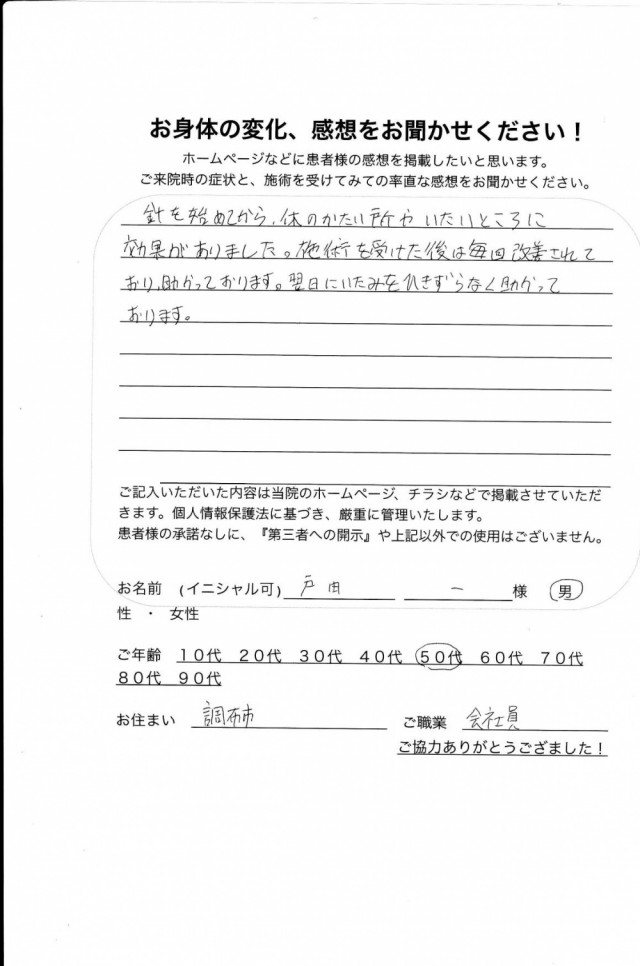 お身体の変化、感想をお聞かせください！
ホームページなどに患者様の感想を掲載したいと思います。
ご来院時の症状と、施術を受けてみての率直な感想をお聞かせください。
針を始めてから、体のかたい所やいたいところに
効果がありました。施術を受けた後は毎回改善されて
おり、助かっております。翌日にいたみをひきずらなく助かって
おります。
ご記入いただいた内容は当院のホームページ、チラシなどで掲載させていただ
きます。個人情報保護法に基づき、厳重に管理いたします。
患者様の承諾なしに、『第三者への開示』や上記以外での使用はございません。
お名前 (イニシャル可) 戸田 一 様 男
性 ・ 女性
ご年齢 １０代 ２０代 ３０代 ４０代 ５０代 ６０代 ７０代
８０代 ９０代
お住まい 調布市 ご職業 会社員
ご協力ありがとうござました！